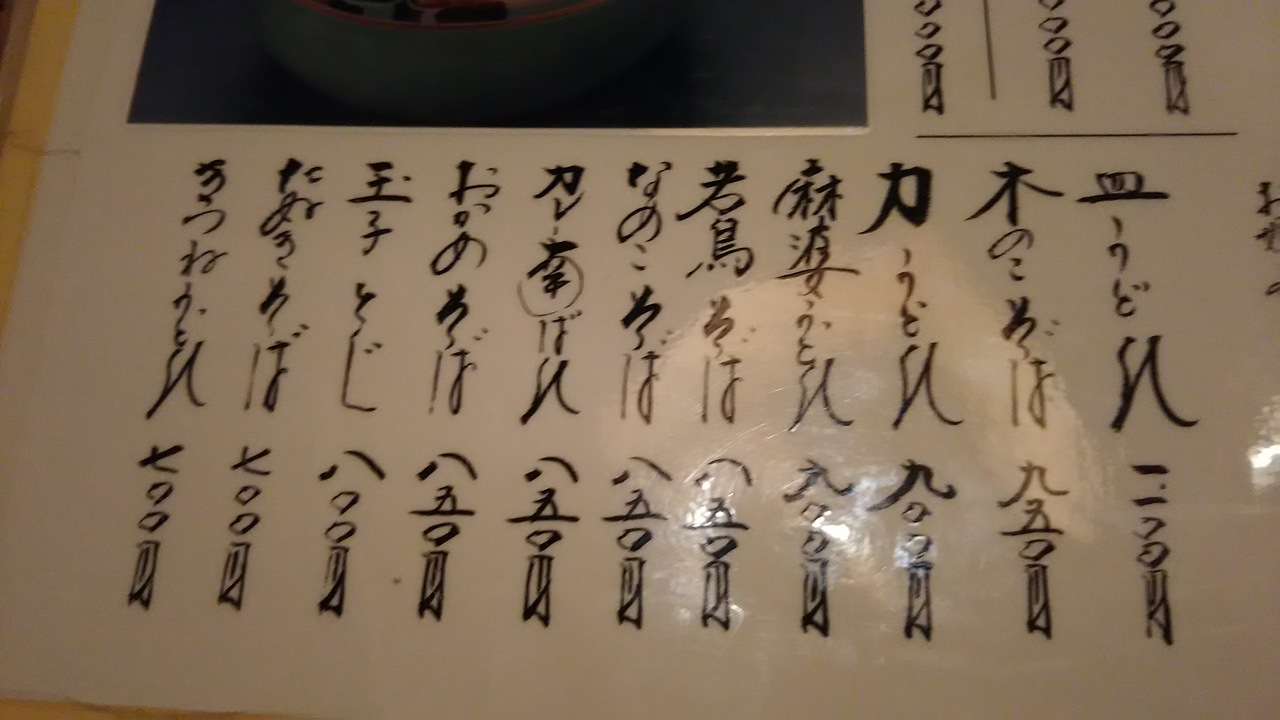 〇〇〇円
〇〇〇円
〇〇〇円
皿うどん 一一〇〇円
木のこそば 九五〇円
力うどん 九〇〇円
麻婆うどん 九〇〇円
若鳥そば 八五〇円
なめこそば 八五〇円
カレー南ばん 八五〇円
おかめそば 八五〇円
玉子とじ 八〇〇円
たぬきそば 七〇〇円
きつねうどん 七〇〇円